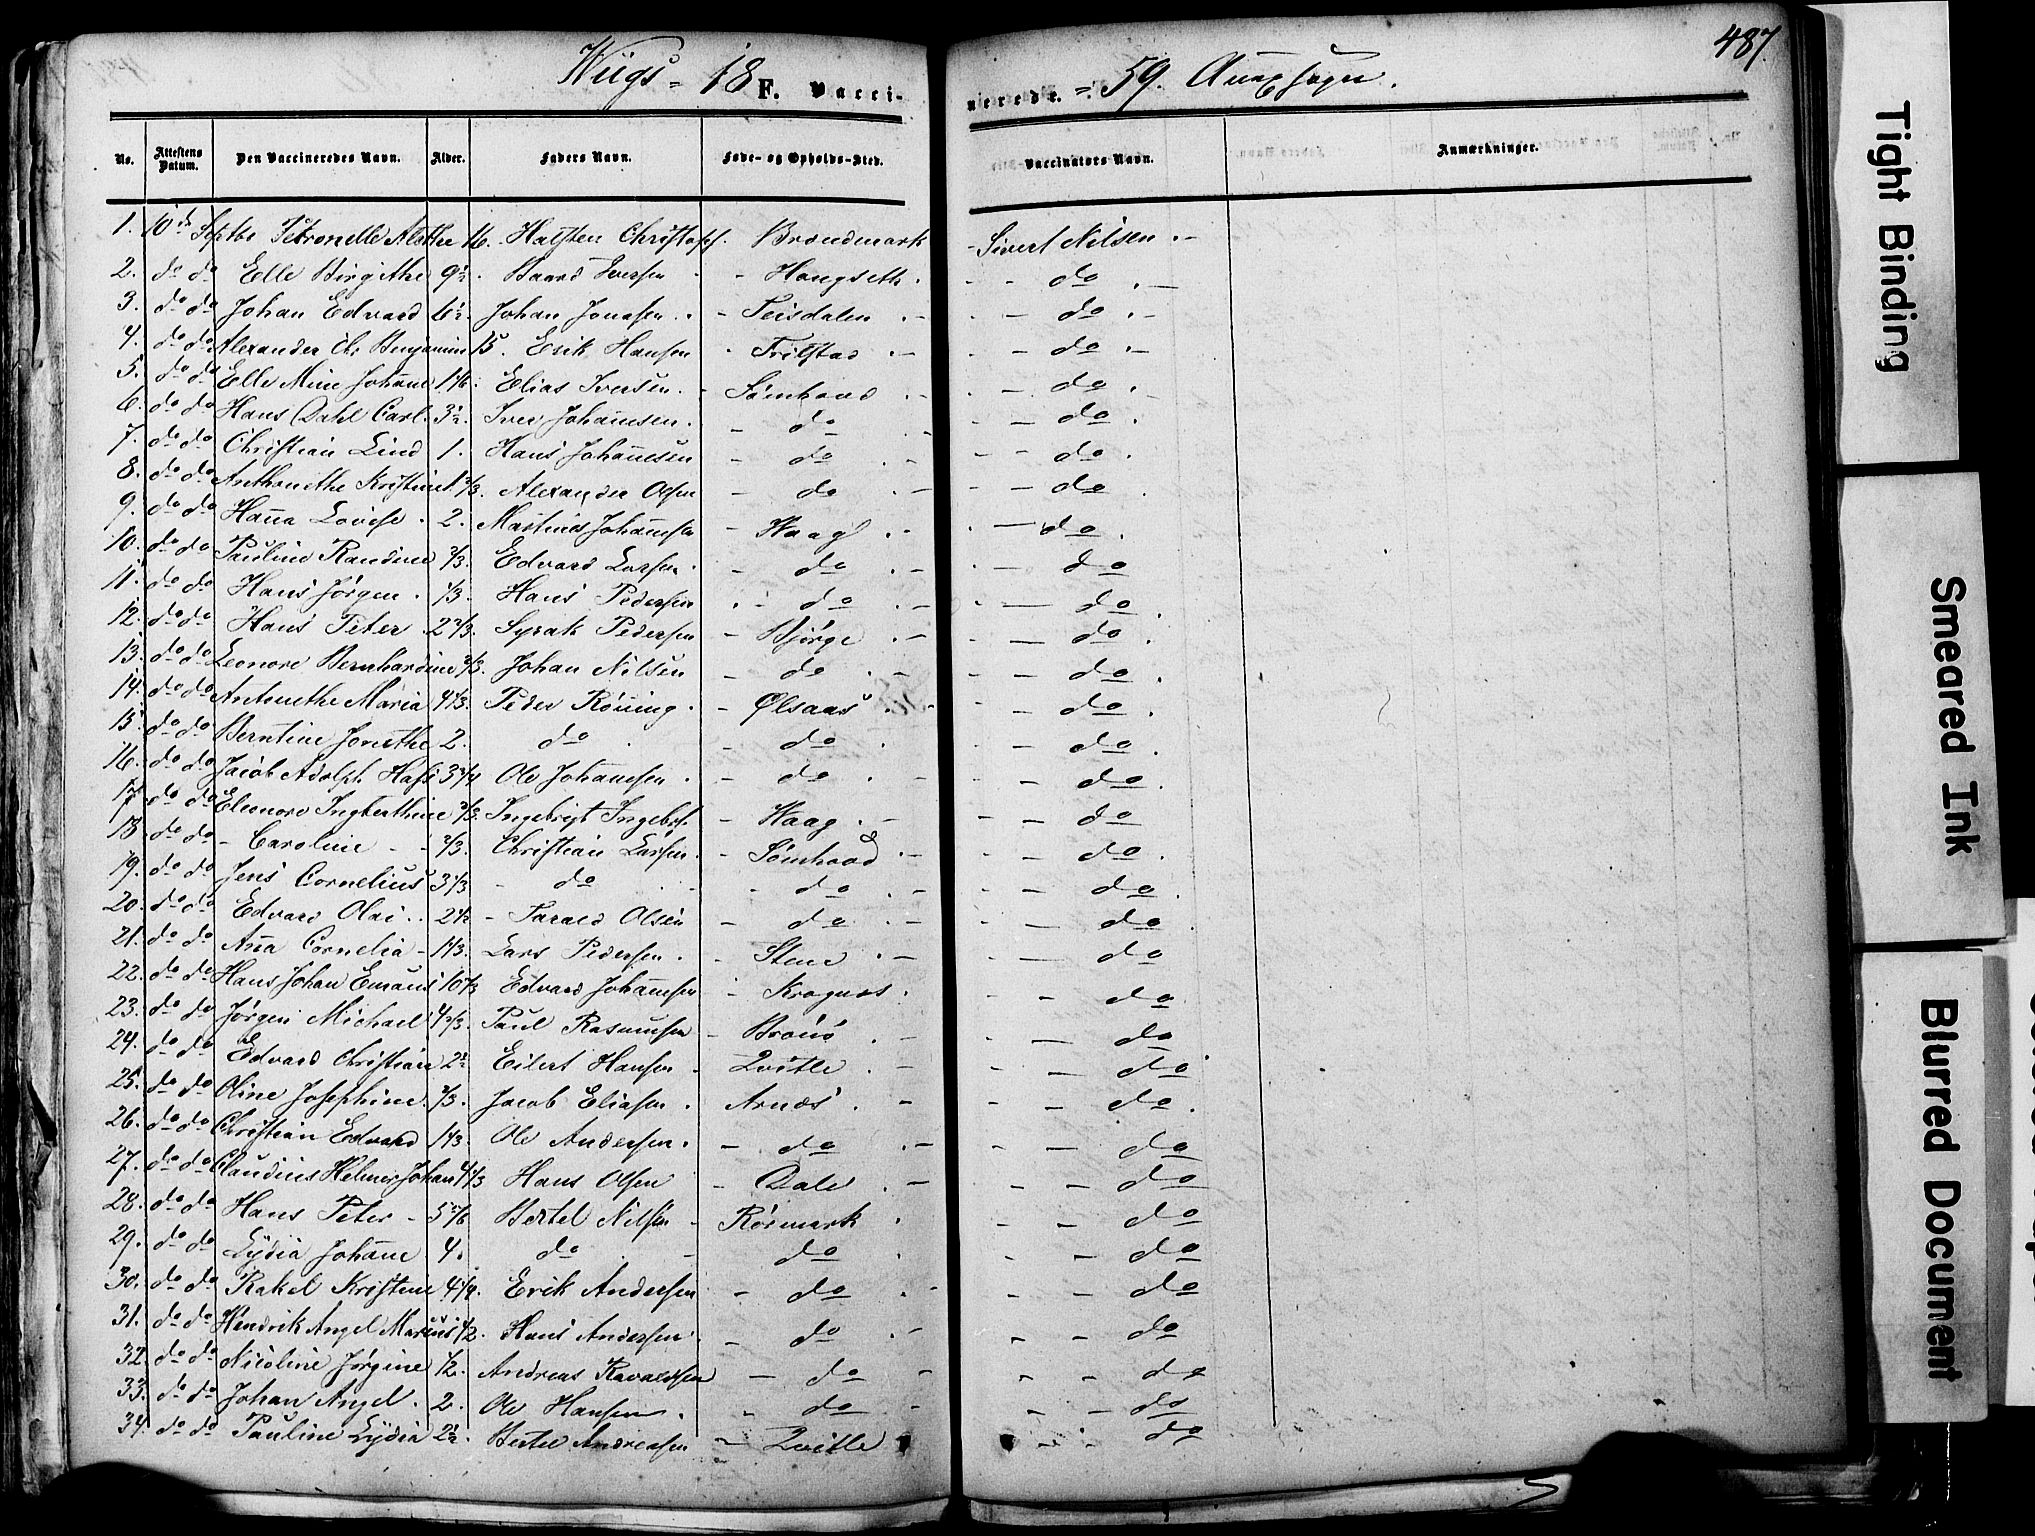 487.
Wiigs = 18 F. Vacci- nerede. = 59. Annexsogn.
No. Attestens Datum. Den Vaccineredes Navn. Alder. Faders Navn. Føde- og Opholds-Sted. Vaccinators Navn. Anmærkninger.
1. 10de Septbr Petronelle Alethe 16. Halsten Christoph. Brandmark - Sivert Nilsen
2. do do Elle Birgithe 9½. Baard Iversen - Haugseth. - do
3. do do Johan Edvard 6½. Johan Jonasen. - Teisdalen - do
4. do do Alexander Chr Benjamin 15. Erik Hansen - do
5. do do Elle Mine Johanne 1 1/6. Elias Iversen. - Sømhoved - do
6. do do Hans Dahl Carl. 3½. Iver Johansen. - do - do
7. do do Christian Lind 1. Hans Johannesen - do - do
8. do do Anthonethe Kristine 1 2/3. Alexander Olsen - do - do
9. do do Hanna Lovise. 2. Martinus Johannesen - Haag - do
10. do do Pauline Randine 2/3. Edvard Larsen. - do - do
11. do do Hans Jørgen. 1/3. Hans Pedersen - do - do
12. do do Hans Peter. 2 2/3. Syrak Pedersen - Bjørge - do
13. do do Leonore Bernhardine 2/3. Johan Nilsen - do - do
14. do do Antonethe Maria 4 1/3. Peder Rønning. - Ølsaas - do
15. do do Berntine Jonethe 2. do - do - do
16. do do Jacob Adolph Hass 3 3/4 Ole Johannesen. - do - do
17. do do Eleonore Ingberthine 2/3. Ingebrigt Ingebr. - Haag - do
18 do do - Caroline - 2/3. Christian Larsen. - Sømhoved - do
19. do do Jens Cornelius 3 1/3 - do - do - do
20. do do Edvard Olai. 2½ - Tarald Olsen - do - do
21. do do Anna Cornelia - 1 1/3. Lars Pedersen. - Stene - do
22. do do Hans Johan Emaus 10 1/3 Edvard Johannesen - Kragnes. - do
23. do do Jørgen Michael 4 2/3. Paul Rasmusen - do
24. do do Edvard Christian 2½ Eilert Hansen - Qvitle - do
25. do do Oline Josephine 2/3. Jacob Eliasen. Arnæs - do
26. do do Christian Edvard 1 1/3. Ole Andersen. - do - do
27. do do Claudius Helmer Johan 4 1/3 Hans Olsen - Dale - do
28. do do Hans Peter - 5 5/6 Bertel Nilsen - Rørmark - do
29. do do Lydia Johanne 4. do - do - do
30. do do Rakel Kristine 4 1/4. Erik Andersen - do - do
31. do do Hendrik Angel Marius 1/2. Hans Andersen - do - do
32. do do Nicoline Jørgine 1/2. Andreas - do - do
33. do do Johan Angel. 2. Ole Hansen. - do - do
34. do do Pauline Lydia 2½. Bertel Andreasen - Qvitle - do
Tight Binding
Smeared Ink
Blurred Document